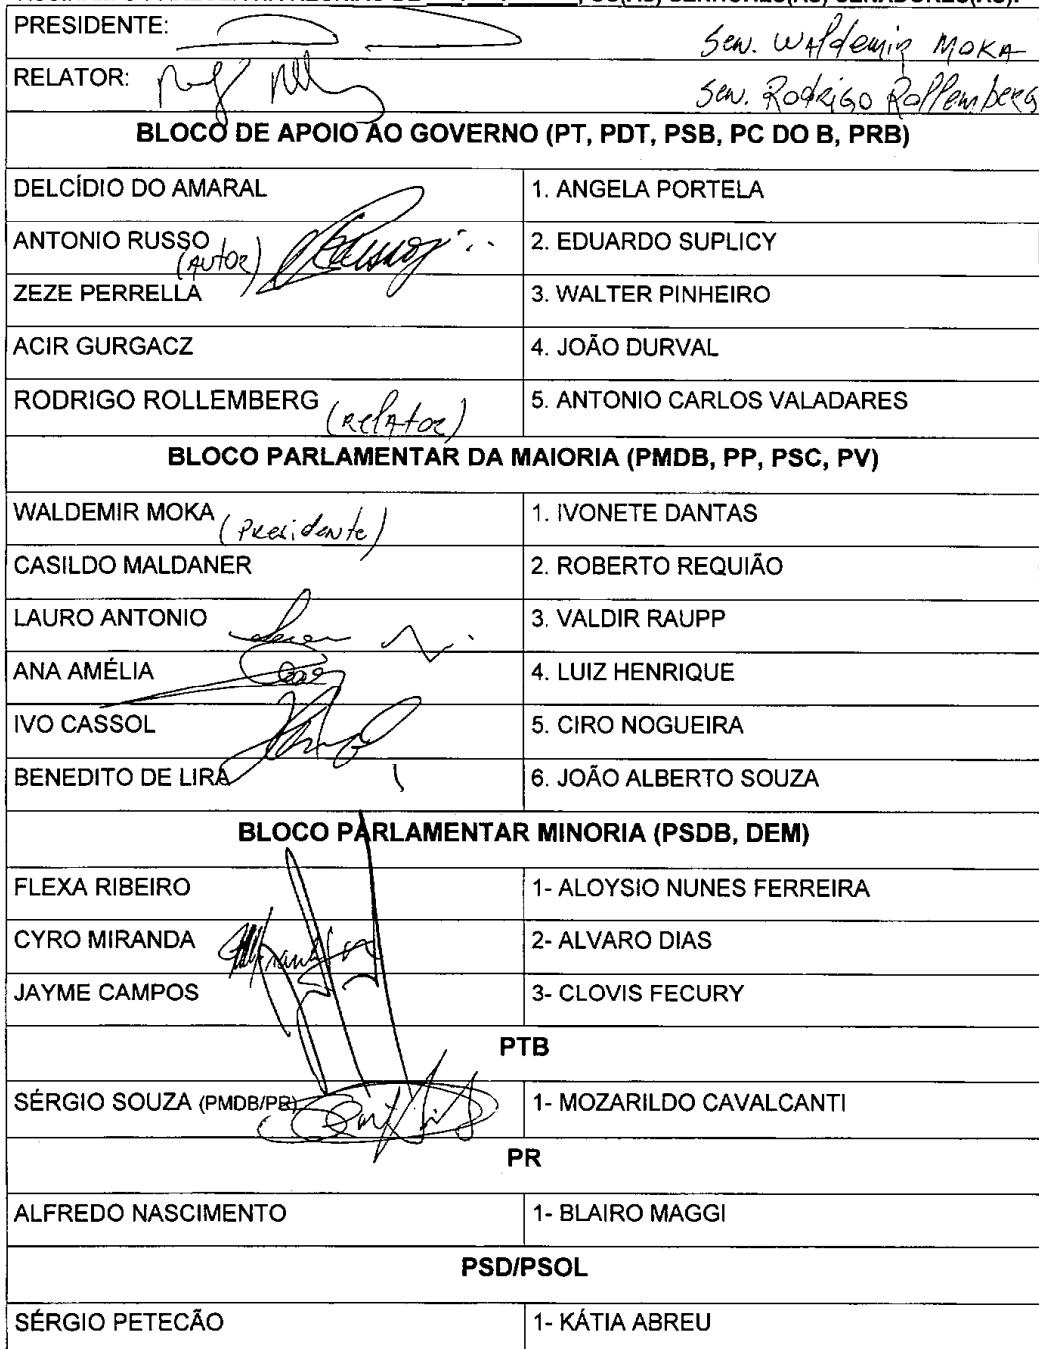 PRESIDENTE: Sen. Waldemir MOKA
RELATOR: Sen. Rodrigo Rollemberg
BLOCO DE APOIO AO GOVERNO (PT, PDT, PSB, PC DO B, PRB)
DELCÍDIO DO AMARAL 1. ANGELA PORTELA
ANTONIO RUSSO (Autor) 2. EDUARDO SUPLICY
ZEZE PERRELLA 3. WALTER PINHEIRO
ACIR GURGACZ 4. JOÃO DURVAL
RODRIGO ROLLEMBERG (Relator) 5. ANTONIO CARLOS VALADARES
BLOCO PARLAMENTAR DA MAIORIA (PMDB, PP, PSC, PV)
WALDEMIR MOKA (Presidente) 1. IVONETE DANTAS
CASILDO MALDANER 2. ROBERTO REQUIÃO
LAURO ANTONIO 3. VALDIR RAUPP
ANA AMÉLIA 4. LUIZ HENRIQUE
IVO CASSOL 5. CIRO NOGUEIRA
BENEDITO DE LIRA 6. JOÃO ALBERTO SOUZA
BLOCO PARLAMENTAR MINORIA (PSDB, DEM)
FLEXA RIBEIRO 1- ALOYSIO NUNES FERREIRA
CYRO MIRANDA 2- ALVARO DIAS
JAYME CAMPOS 3- CLOVIS FECURY
PTB
SÉRGIO SOUZA (PMDB/PR) 1- MOZARILDO CAVALCANTI
PR
ALFREDO NASCIMENTO 1- BLAIRO MAGGI
PSD/PSOL
SÉRGIO PETECÃO 1- KÁTIA ABREU